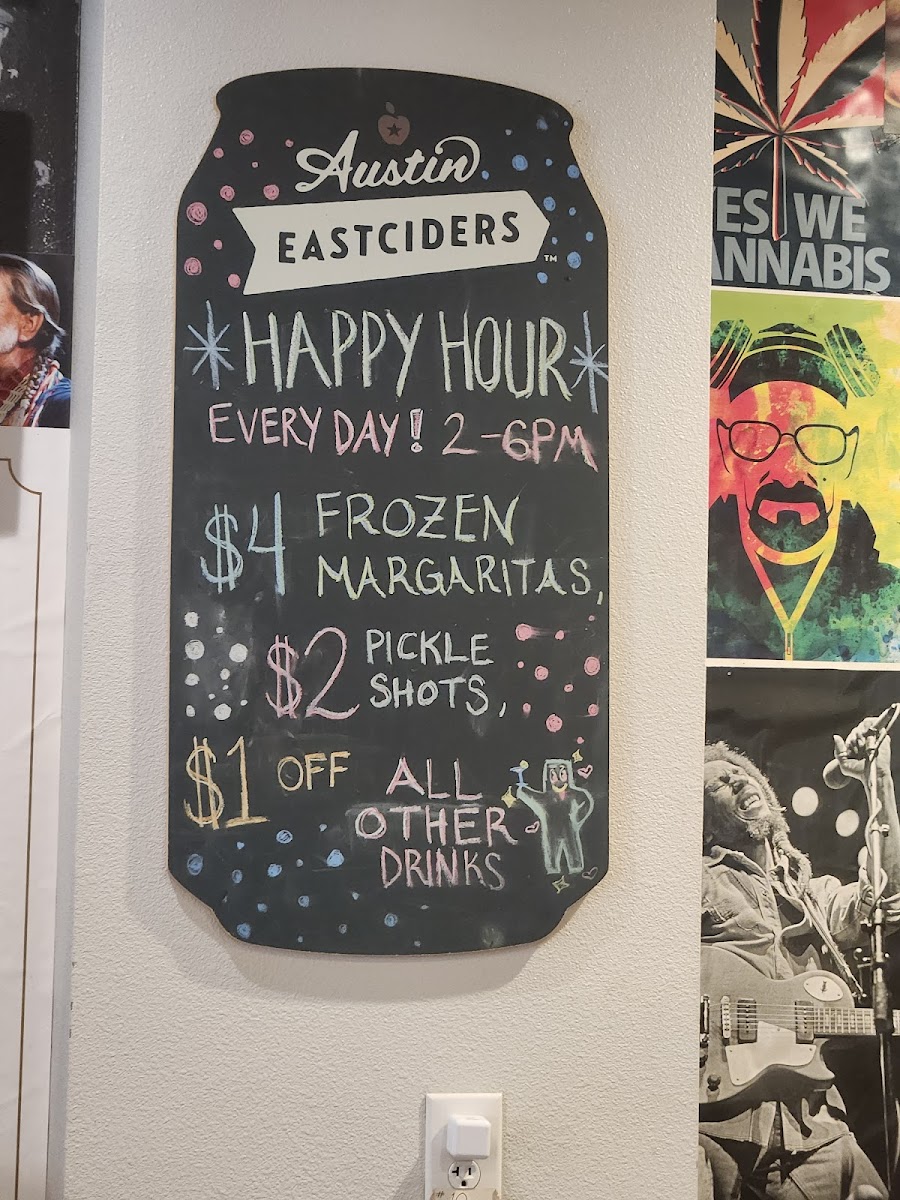 Austin
EASTCIDERS
TM
HAPPY HOUR
EVERY DAY! 2-6PM
$4 FROZEN
MARGARITAS,
$2 PICKLE
SHOTS,
$1 OFF ALL
OTHER
DRINKS
ES WE
ANNABIS